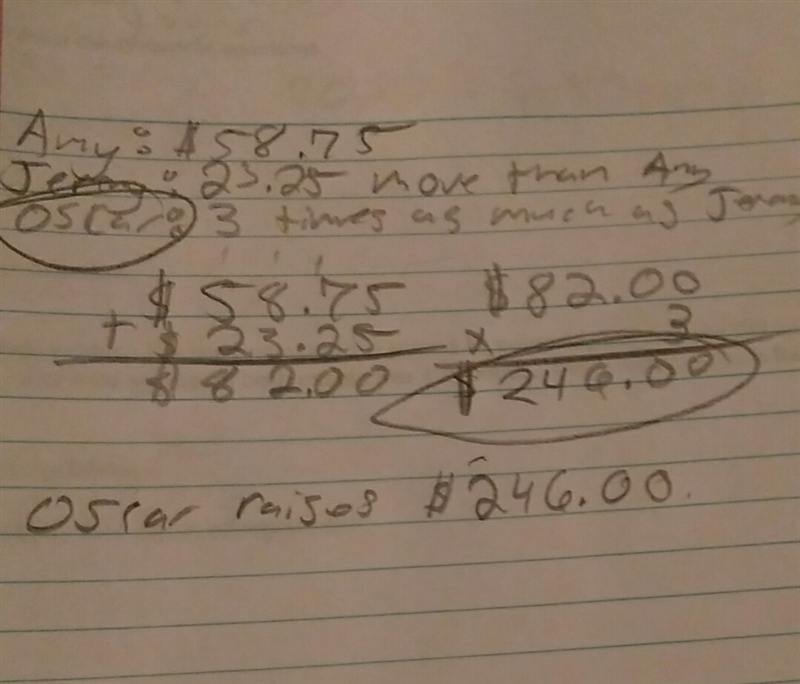 Amy: $58.75
Jeremy: 23.25 more than Amy
Oscar: 3 times as much as Jeremy
$ 58.75 $82.00
+ $ 23.25 x 3
$ 82.00 $246.00
Oscar raises $246.00.